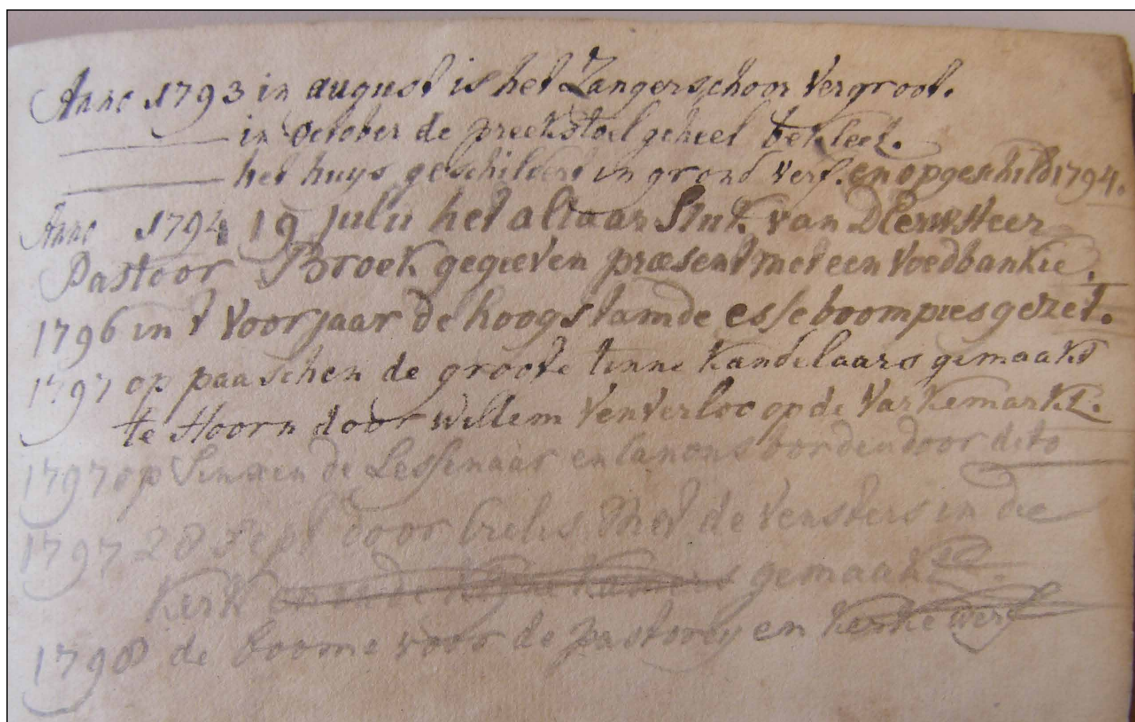 Anno 1793 in august is het Zangerschoor vergroot.
in October de preekstoel geheel bekleet.
het huys geschildert in grond verf. en opgeschild 1794.
Anno 1794 19 julii het altaar Stuk van Heer
Pastoor Broek gegeven præsent met een voedbankie.
1796 in t voorjaar de hoogstamde esse boompies gezet.
1797 op paaschen de groote tinne kandelaars gemaakt
te Hoorn door willem Venverloo op de Varkemarkt.
1797 op Sinxen de Lessenaar en Canons borden door dito
1797 28 Sept door de Vensters in die
Kerk gemaakt.
1798 de boome voor de pastorey en Kerke werf